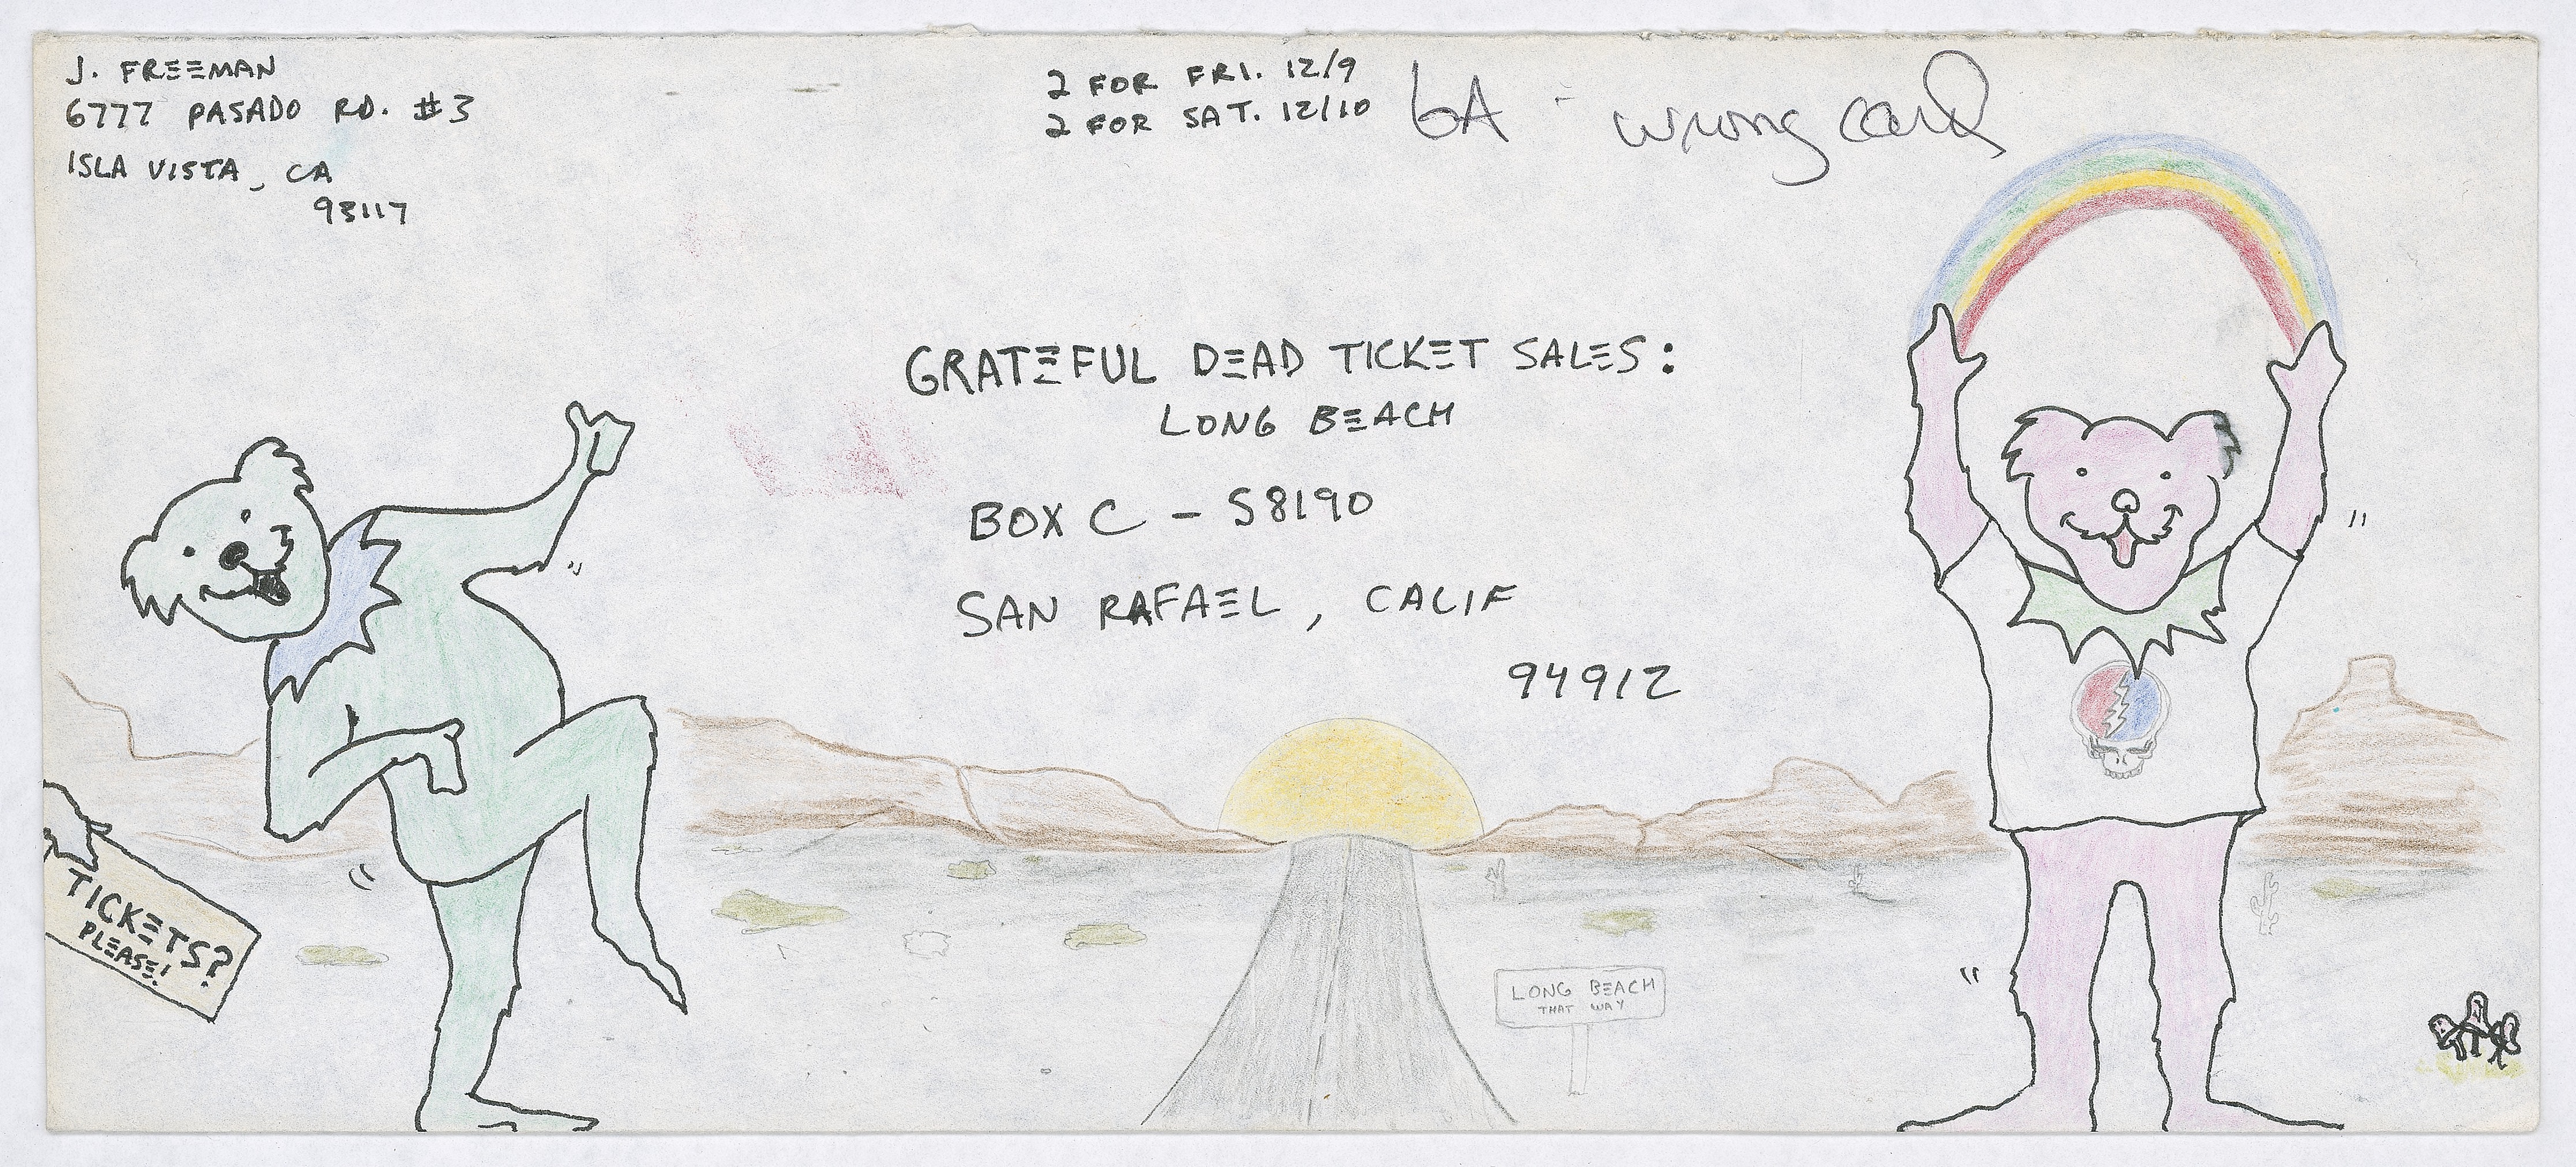 J. FREEMAN
6777 PASADO RD. #3
ISLA VISTA, CA
93117
2 FOR FRI. 12/9
2 FOR SAT. 12/10
6A - wrong card
GRATEFUL DEAD TICKET SALES:
LONG BEACH
BOX C - S8190
SAN RAFAEL, CALIF
94912
TICKETS?
PLEASE!
LONG BEACH
THAT WAY